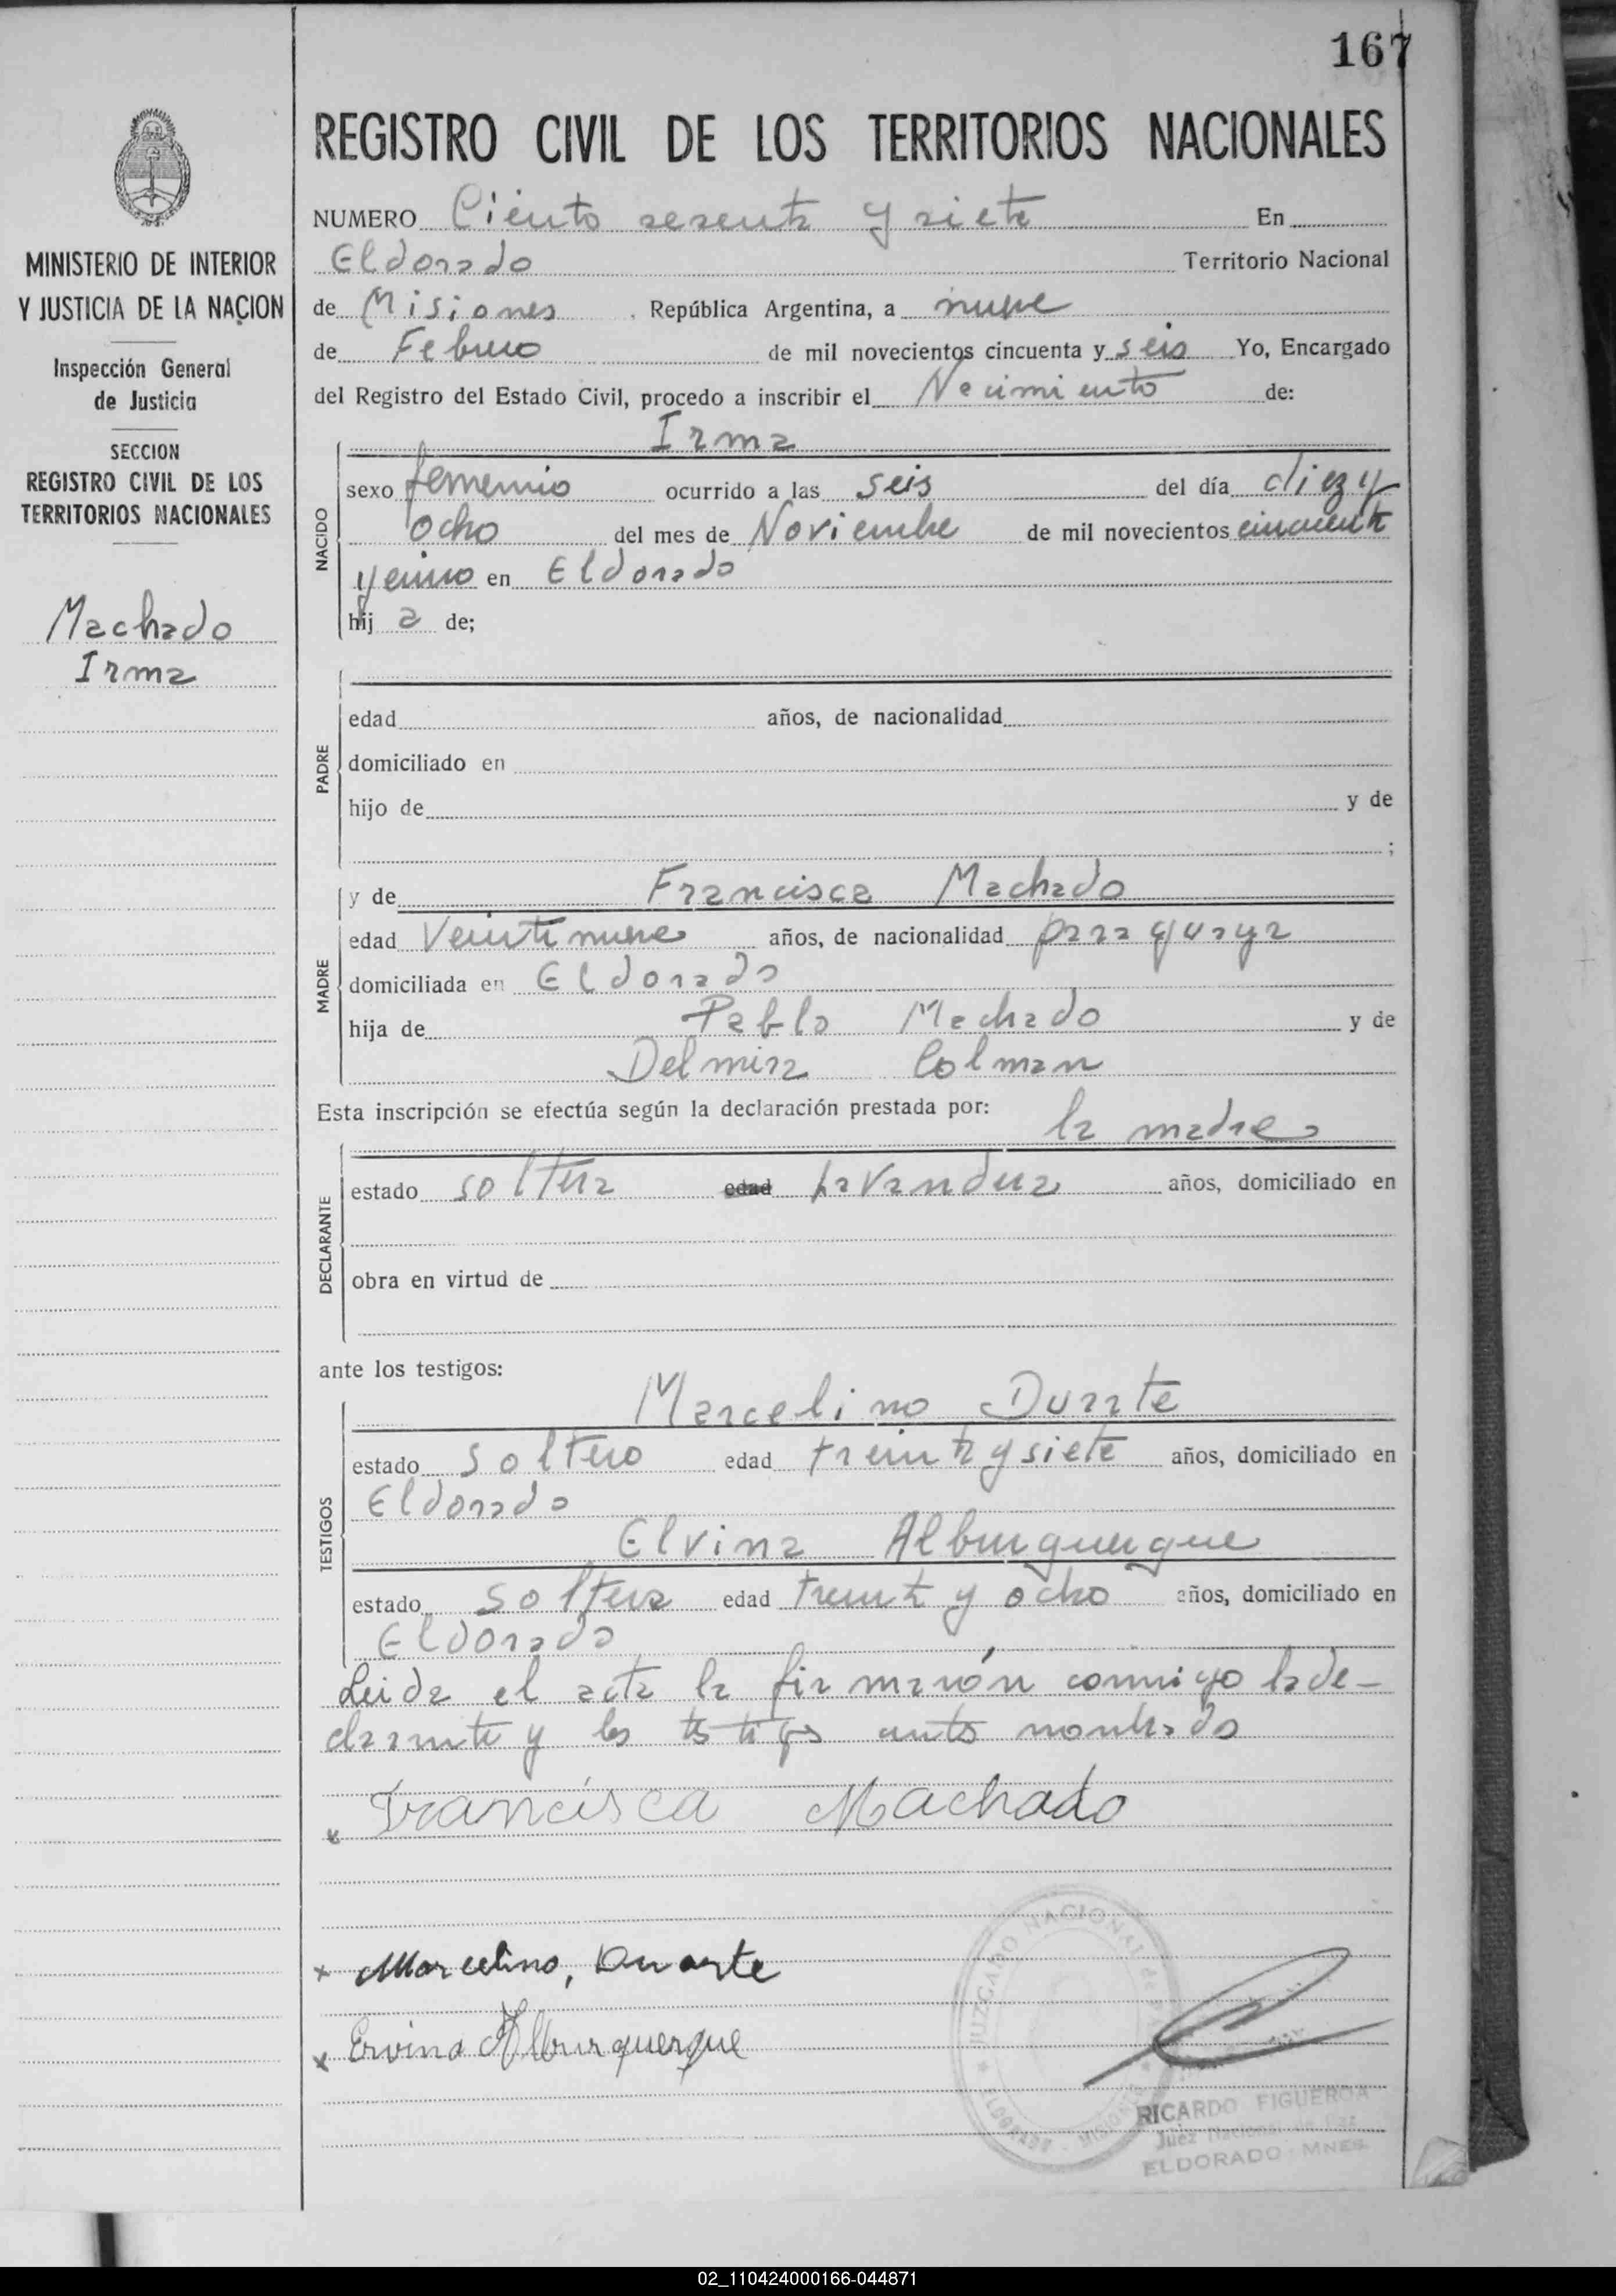 167
REGISTRO CIVIL DE LOS TERRITORIOS NACIONALES
MINISTERIO DE INTERIOR
Y JUSTICIA DE LA NACION
Inspección General
de Justicia
SECCION
REGISTRO CIVIL DE LOS
TERRITORIOS NACIONALES
Machado
Irma
NUMERO Ciento sesenta y siete En
Eldorado Territorio Nacional
de Misiones . República Argentina, a nueve
de Febrero de mil novecientos cincuenta y seis Yo, Encargado
del Registro del Estado Civil, procedo a inscribir el Nacimiento de:
Irma
NACIDO
sexo femenino ocurrido a las seis del día diez y
ocho del mes de Noviembre de mil novecientos cincuenta
y cinco en Eldorado
hij a de;
PADRE
edad años, de nacionalidad
domiciliado en
hijo de y de
;
MADRE
y de Francisca Machado
edad Veintinueve años, de nacionalidad paraguaya
domiciliada en Eldorado
hija de Pablo Machado y de
Delmira Colman
Esta inscripción se efectúa según la declaración prestada por: la madre
DECLARANTE
estado soltera edad lavandera años, domiciliado en
obra en virtud de
ante los testigos:
TESTIGOS
Marcelino Duarte
estado soltero edad treinta y siete años, domiciliado en
Eldorado
Elvina Alburquerque
estado soltera edad treinta y ocho años, domiciliado en
Eldorado
Leida el acta la firmarón conmigo la de-
clarante y los testigos antes nombrado
Francisca Machado
x Marcelino, Duarte
x Ervina Alburquerque
JUZGADO NACIONAL de
ELDORADO - MISIONES
RICARDO FIGUEROA
Juez Nacional de Paz
ELDORADO - MNES.
02_110424000166-044871